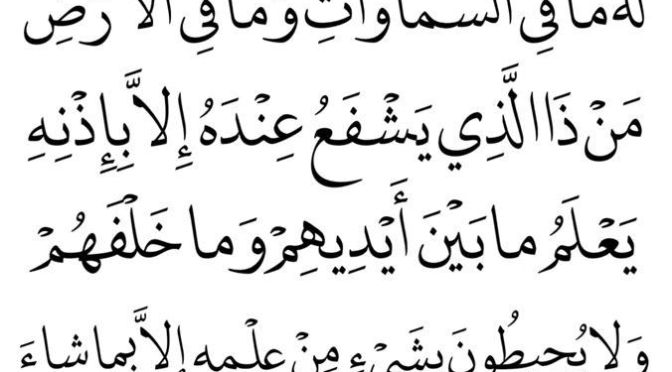 له ما في السماوات وما في الأرض
مَنْ ذَا الَّذِي يَشْفَعُ عِنْدَهُ إِلاَّ بِإِذْنِهِ
يَعْلَمُ ما بَيْنَ أَيْدِيهِمْ وَما خَلْفَهُمْ
وَلا يُحِيطُونَ بِشَيْءٍ مِنْ عِلْمِهِ إِلاَّ بِما شاءَ